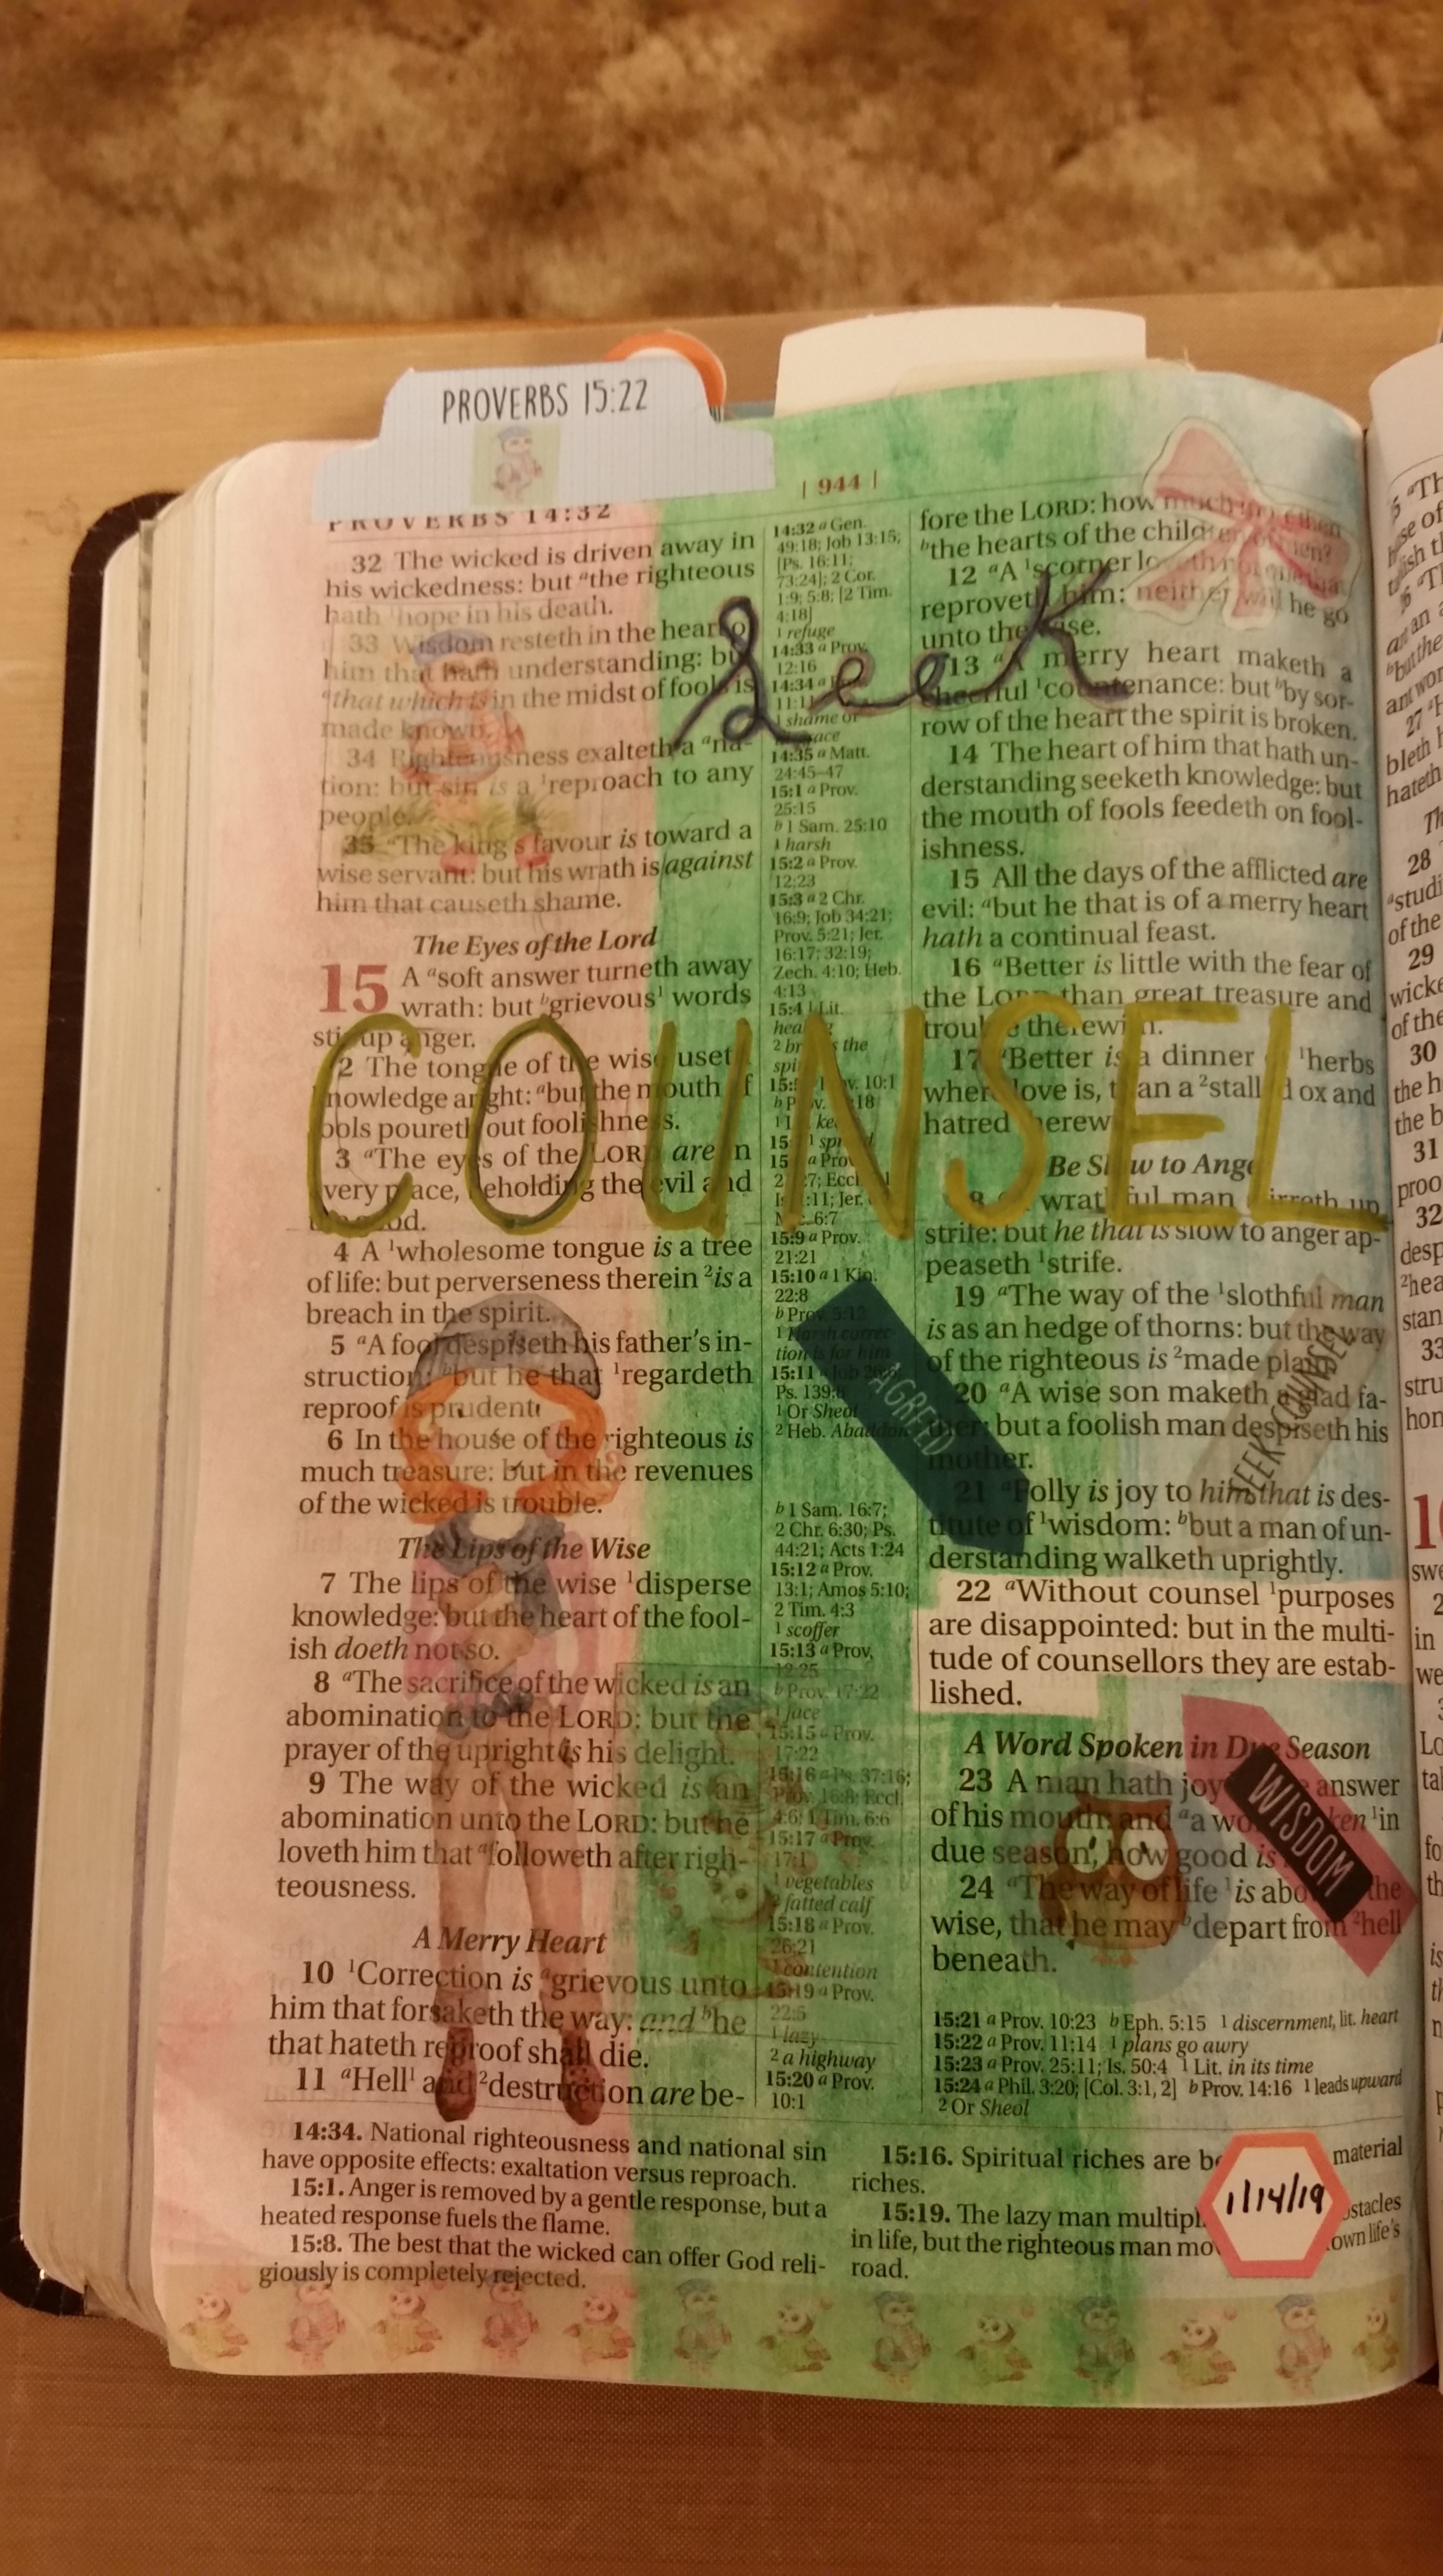 PROVERBS 15:22
| 944 |
PROVERBS 14:32
Seek
COUNSEL
32 The wicked is driven away in
his wickedness: but ᵃthe righteous
hath ¹hope in his death.
33 Wisdom resteth in the heart of
him that hath understanding: but
ᵃthat which is in the midst of fools is
made known.
34 Righteousness exalteth a ᵃna-
tion: but sin is a ¹reproach to any
people.
35 ᵃThe king's favour is toward a
wise servant: but his wrath is against
him that causeth shame.
The Eyes of the Lord
15 A ᵃsoft answer turneth away
wrath: but ᵇgrievous¹ words
stir up anger.
2 The tongue of the wise useth
knowledge aright: ᵃbut the mouth of
fools poureth out foolishness.
3 ᵃThe eyes of the LORD are in
every place, beholding the evil and
the good.
4 A ¹wholesome tongue is a tree
of life: but perverseness therein ²is a
breach in the spirit.
5 ᵃA fool despiseth his father's in-
struction: ᵇbut he that ¹regardeth
reproof is prudent.
6 In the house of the righteous is
much treasure: but in the revenues
of the wicked is trouble.
The Lips of the Wise
7 The lips of the wise ¹disperse
knowledge: but the heart of the fool-
ish doeth not so.
8 ᵃThe sacrifice of the wicked is an
abomination to the LORD: but the
prayer of the upright is his delight.
9 The way of the wicked is an
abomination unto the LORD: but he
loveth him that ᵃfolloweth after righ-
teousness.
A Merry Heart
10 ¹Correction is ᵃgrievous unto
him that forsaketh the way: and ᵇhe
that hateth reproof shall die.
11 ᵃHell¹ and ²destruction are be-
14:32 a Gen.
49:18; Job 13:15;
[Ps. 16:11;
73:24]; 2 Cor.
1:9; 5:8; [2 Tim.
4:18]
1 refuge
14:33 a Prov.
12:16
14:34 a
11:11
1 shame or
14:35 a Matt.
24:45–47
15:1 a Prov.
25:15
b 1 Sam. 25:10
1 harsh
15:2 a Prov.
12:23
15:3 a 2 Chr.
16:9; Job 34:21;
Prov. 5:21; Jer.
16:17; 32:19;
Zech. 4:10; Heb.
4:13
15:4 1 Lit.
15:9 a Prov.
21:21
15:10 a 1 Kin.
22:8
b Prov. 5:12
1 Harsh correc-
tion is for him
15:11 a Job 26:6;
Ps. 139:8
1 Or Sheol
2 Heb. Abaddon
b 1 Sam. 16:7;
2 Chr. 6:30; Ps.
44:21; Acts 1:24
15:12 a Prov.
13:1; Amos 5:10;
2 Tim. 4:3
1 scoffer
15:13 a Prov.
12:25
b Prov. 17:22
1 face
15:15 a Prov.
17:22
15:16 a Ps. 37:16;
Prov. 16:8; Eccl.
4:6; 1 Tim. 6:6
15:17 a Prov.
17:1
1 vegetables
2 fatted calf
15:18 a Prov.
26:21
1 contention
15:19 a Prov.
22:5
1 lazy
2 a highway
15:20 a Prov.
10:1
fore the LORD: how much more then
ᵇthe hearts of the children of men?
12 ᵃA ¹scorner loveth not one that
reproveth him: neither will he go
unto the wise.
13 ᵃA merry heart maketh a
cheerful ¹countenance: but ᵇby sor-
row of the heart the spirit is broken.
14 The heart of him that hath un-
derstanding seeketh knowledge: but
the mouth of fools feedeth on fool-
ishness.
15 All the days of the afflicted are
evil: ᵃbut he that is of a merry heart
hath a continual feast.
16 ᵃBetter is little with the fear of
the LORD than great treasure and
trouble therewith.
17 ᵃBetter is a dinner of ¹herbs
where love is, than a ²stalled ox and
hatred therewith.
Be Slow to Anger
18 ᵃA wrathful man stirreth up
strife: but he that is slow to anger ap-
peaseth ¹strife.
19 ᵃThe way of the ¹slothful man
is as an hedge of thorns: but the way
of the righteous is ²made plain.
20 ᵃA wise son maketh a glad fa-
ther: but a foolish man despiseth his
mother.
21 ᵃFolly is joy to him that is des-
titute of ¹wisdom: ᵇbut a man of un-
derstanding walketh uprightly.
22 ᵃWithout counsel ¹purposes
are disappointed: but in the multi-
tude of counsellors they are estab-
lished.
AGREED
SEEK COUNSEL
A Word Spoken in Due Season
23 A man hath joy answer
of his mouth: and ᵃa word spoken ¹in
due season, how good is
24 ᵃThe way of life ¹is above the
wise, that he may ᵇdepart from ²hell
beneath.
WISDOM
15:21 a Prov. 10:23 b Eph. 5:15 1 discernment, lit. heart
15:22 a Prov. 11:14 1 plans go awry
15:23 a Prov. 25:11; Is. 50:4 1 Lit. in its time
15:24 a Phil. 3:20; [Col. 3:1, 2] b Prov. 14:16 1 leads upward
2 Or Sheol
14:34. National righteousness and national sin
have opposite effects: exaltation versus reproach.
15:1. Anger is removed by a gentle response, but a
heated response fuels the flame.
15:8. The best that the wicked can offer God reli-
giously is completely rejected.
15:16. Spiritual riches are material
riches.
15:19. The lazy man
in life, but the righteous man own life's
road.
1/14/19